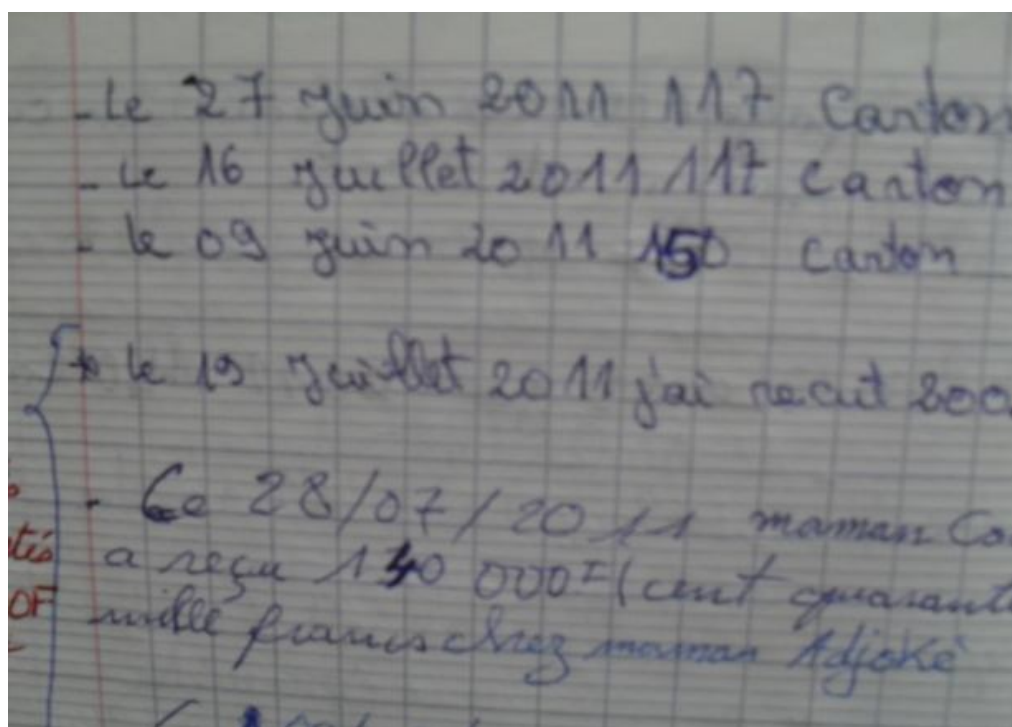 - Le 27 Juin 2011 117 Carton
- Le 16 Juillet 2011 117 Carton
- Le 09 Juin 2011 150 Carton
* Le 19 Juillet 2011 j'ai recut 800
- Le 28/07/2011 maman Co
a reçu 140 000F (cent quarant
mille francs chez maman Adjoké
OF